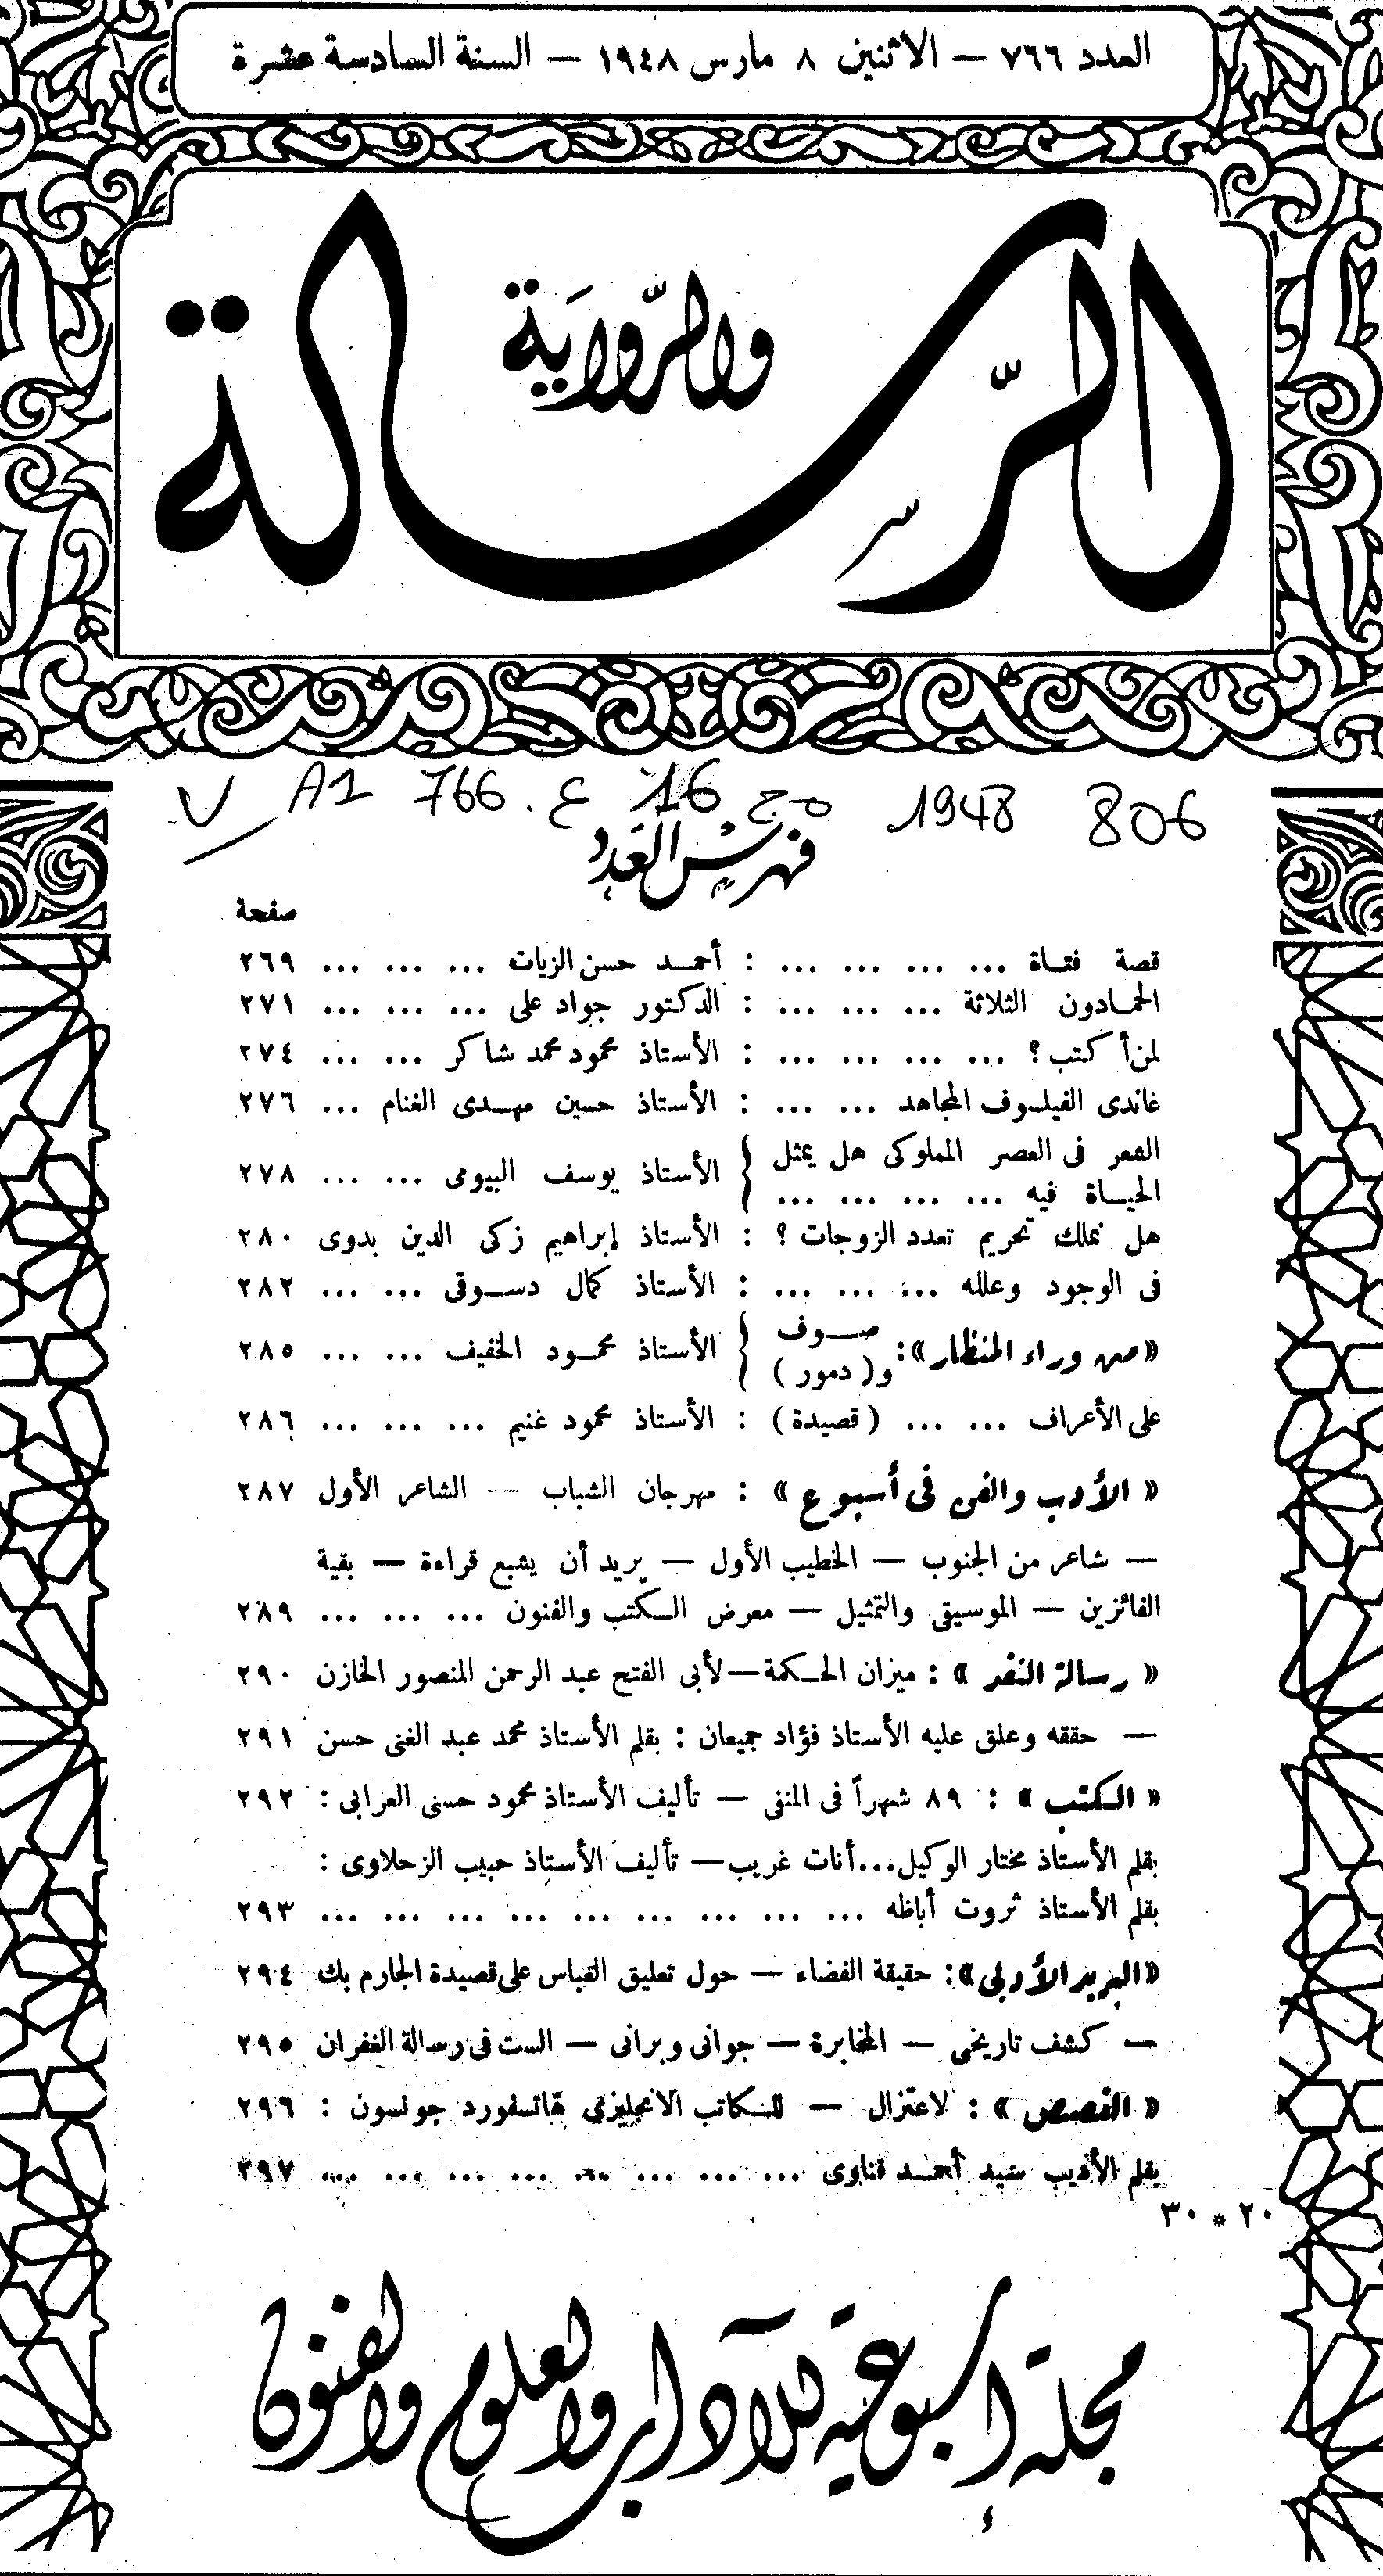 العدد ٧٦٦ — الاثنين ٨ مارس ١٩٤٨ — السنة السادسة عشرة
الرسالة
والرواية
806 1948 مج 16 ع . 766 A1
فهرس العدد
صفحة
قصة فتاة ... ... ... ... : أحمد حسن الزيات ... ... ... ٢٦٩
الحمادون الثلاثة ... ... ... : الدكتور جواد على ... ... ... ٢٧١
لمن أكتب ؟ ... ... ... ... : الأستاذ محمود محمد شاكر ... ... ٢٧٤
غاندى الفيلسوف المجاهد ... ... : الأستاذ حسين مهدى الغنام ... ٢٧٦
الشعر فى العصر المملوكى هل يمثل
الحياة فيه ... ... ... ... } الأستاذ يوسف البيومى ... ... ٢٧٨
هل نملك تحريم تعدد الزوجات ؟ : الأستاذ إبراهيم زكى الدين بدوى ٢٨٠
فى الوجود وعلله ... ... ... : الأستاذ كمال دسوقى ... ... ٢٨٢
«من وراء المنظار»: صوف
و( دمور ) } الأستاذ محمود الخفيف ... ... ٢٨٥
على الأعراف ... ... (قصيدة) : الأستاذ محمود غنيم ... ... ... ٢٨٦
« الأدب والفن فى أسبوع » : مهرجان الشباب — الشاعر الأول ٢٨٧
— شاعر من الجنوب — الخطيب الأول — يريد أن يشبع قراءة — بقية
الفائزين — الموسيقى والتمثيل — معرض الكتب والفنون ... ... ... ٢٨٩
« رسالة النقد » : ميزان الحكمة — لأبى الفتح عبد الرحمن المنصور الخازن ٢٩٠
— حققه وعلق عليه الأستاذ فؤاد جميعان : بقلم الأستاذ محمد عبد الغنى حسن ٢٩١
« الكتب » : ٨٩ شهراً فى المنفى — تأليف الأستاذ محمود حسنى العرابى : ٢٩٢
بقلم الأستاذ مختار الوكيل... أنات غريب — تأليف الأستاذ حبيب الزحلاوى :
بقلم الأستاذ ثروت أباظه ... ... ... ... ... ... ... ... ... ٢٩٣
«البريد الأدبى»: حقيقة الفضاء — حول تعليق القباس على قصيدة الجارم بك ٢٩٤
— كشف تاريخى — المخابرة — جوانى وبرانى — الست فى رسالة الغفران ٢٩٥
« القصص » : لاعتزال — للكاتب الانجليزى هانسفورد جونسون : ٢٩٦
بقلم الأديب سيد أحمد قناوى ... ... ... ... ... ... ... ... ٢٩٧
٢٠ * ٣٠
مجلة أسبوعية للآداب والعلوم والفنون